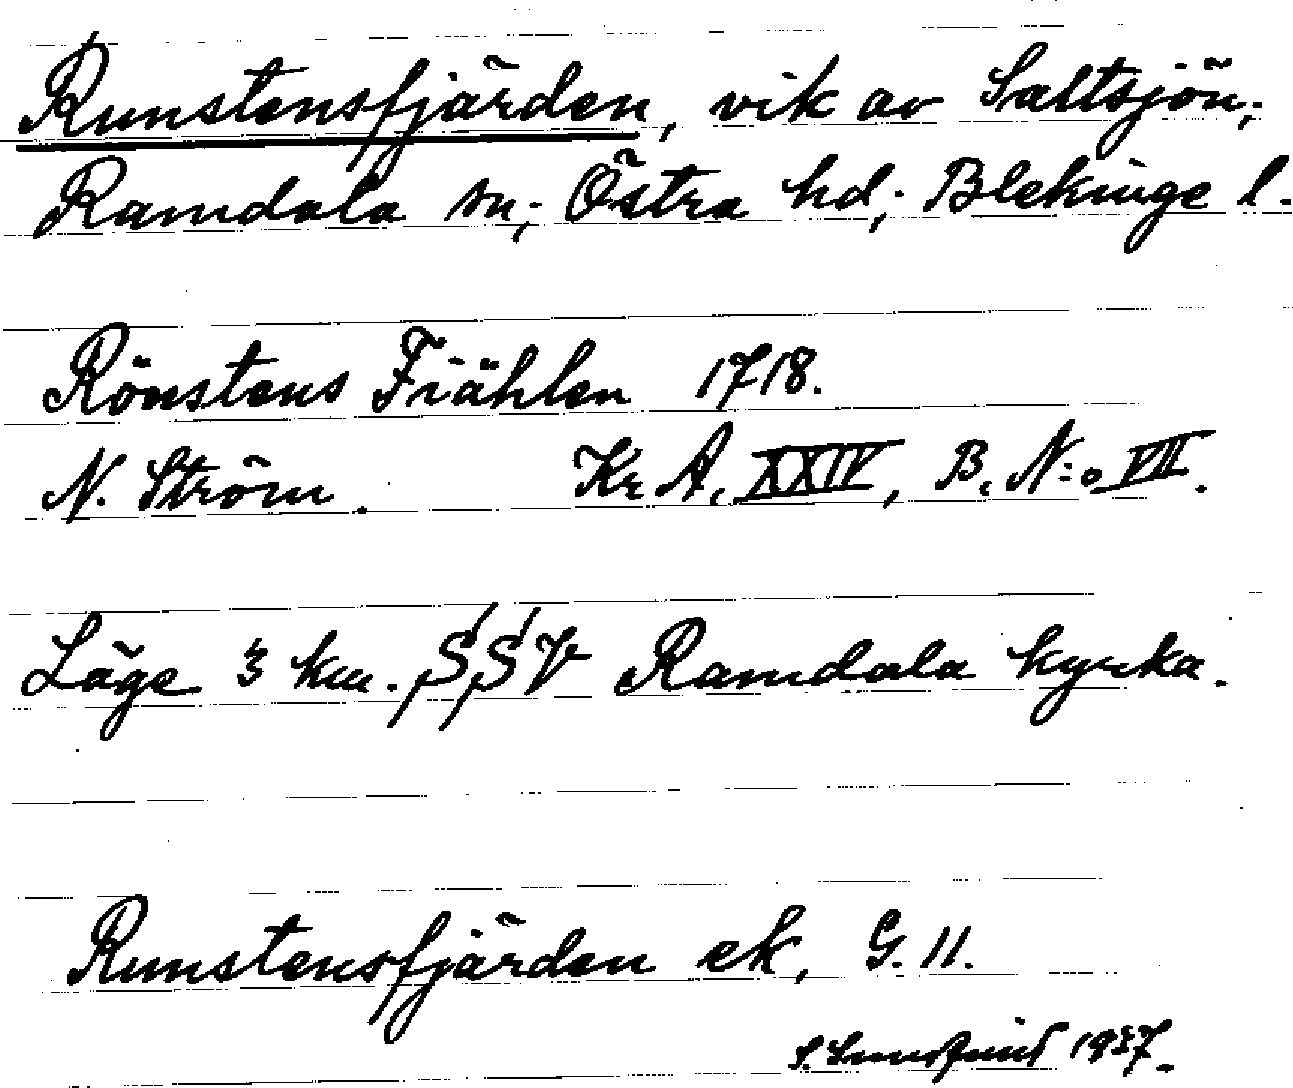 Runstensfjärden, vik av Saltsjön;
Ramdala sn; Östra hd; Blekinge l.
Rönstens Fiählen 1718.
N. Ström. Kr. A. XXIV, B. N:o VII.
Läge 3 km. SSV Ramdala kyrka.
Runstensfjärden ek, G. 11.
S. 1937.